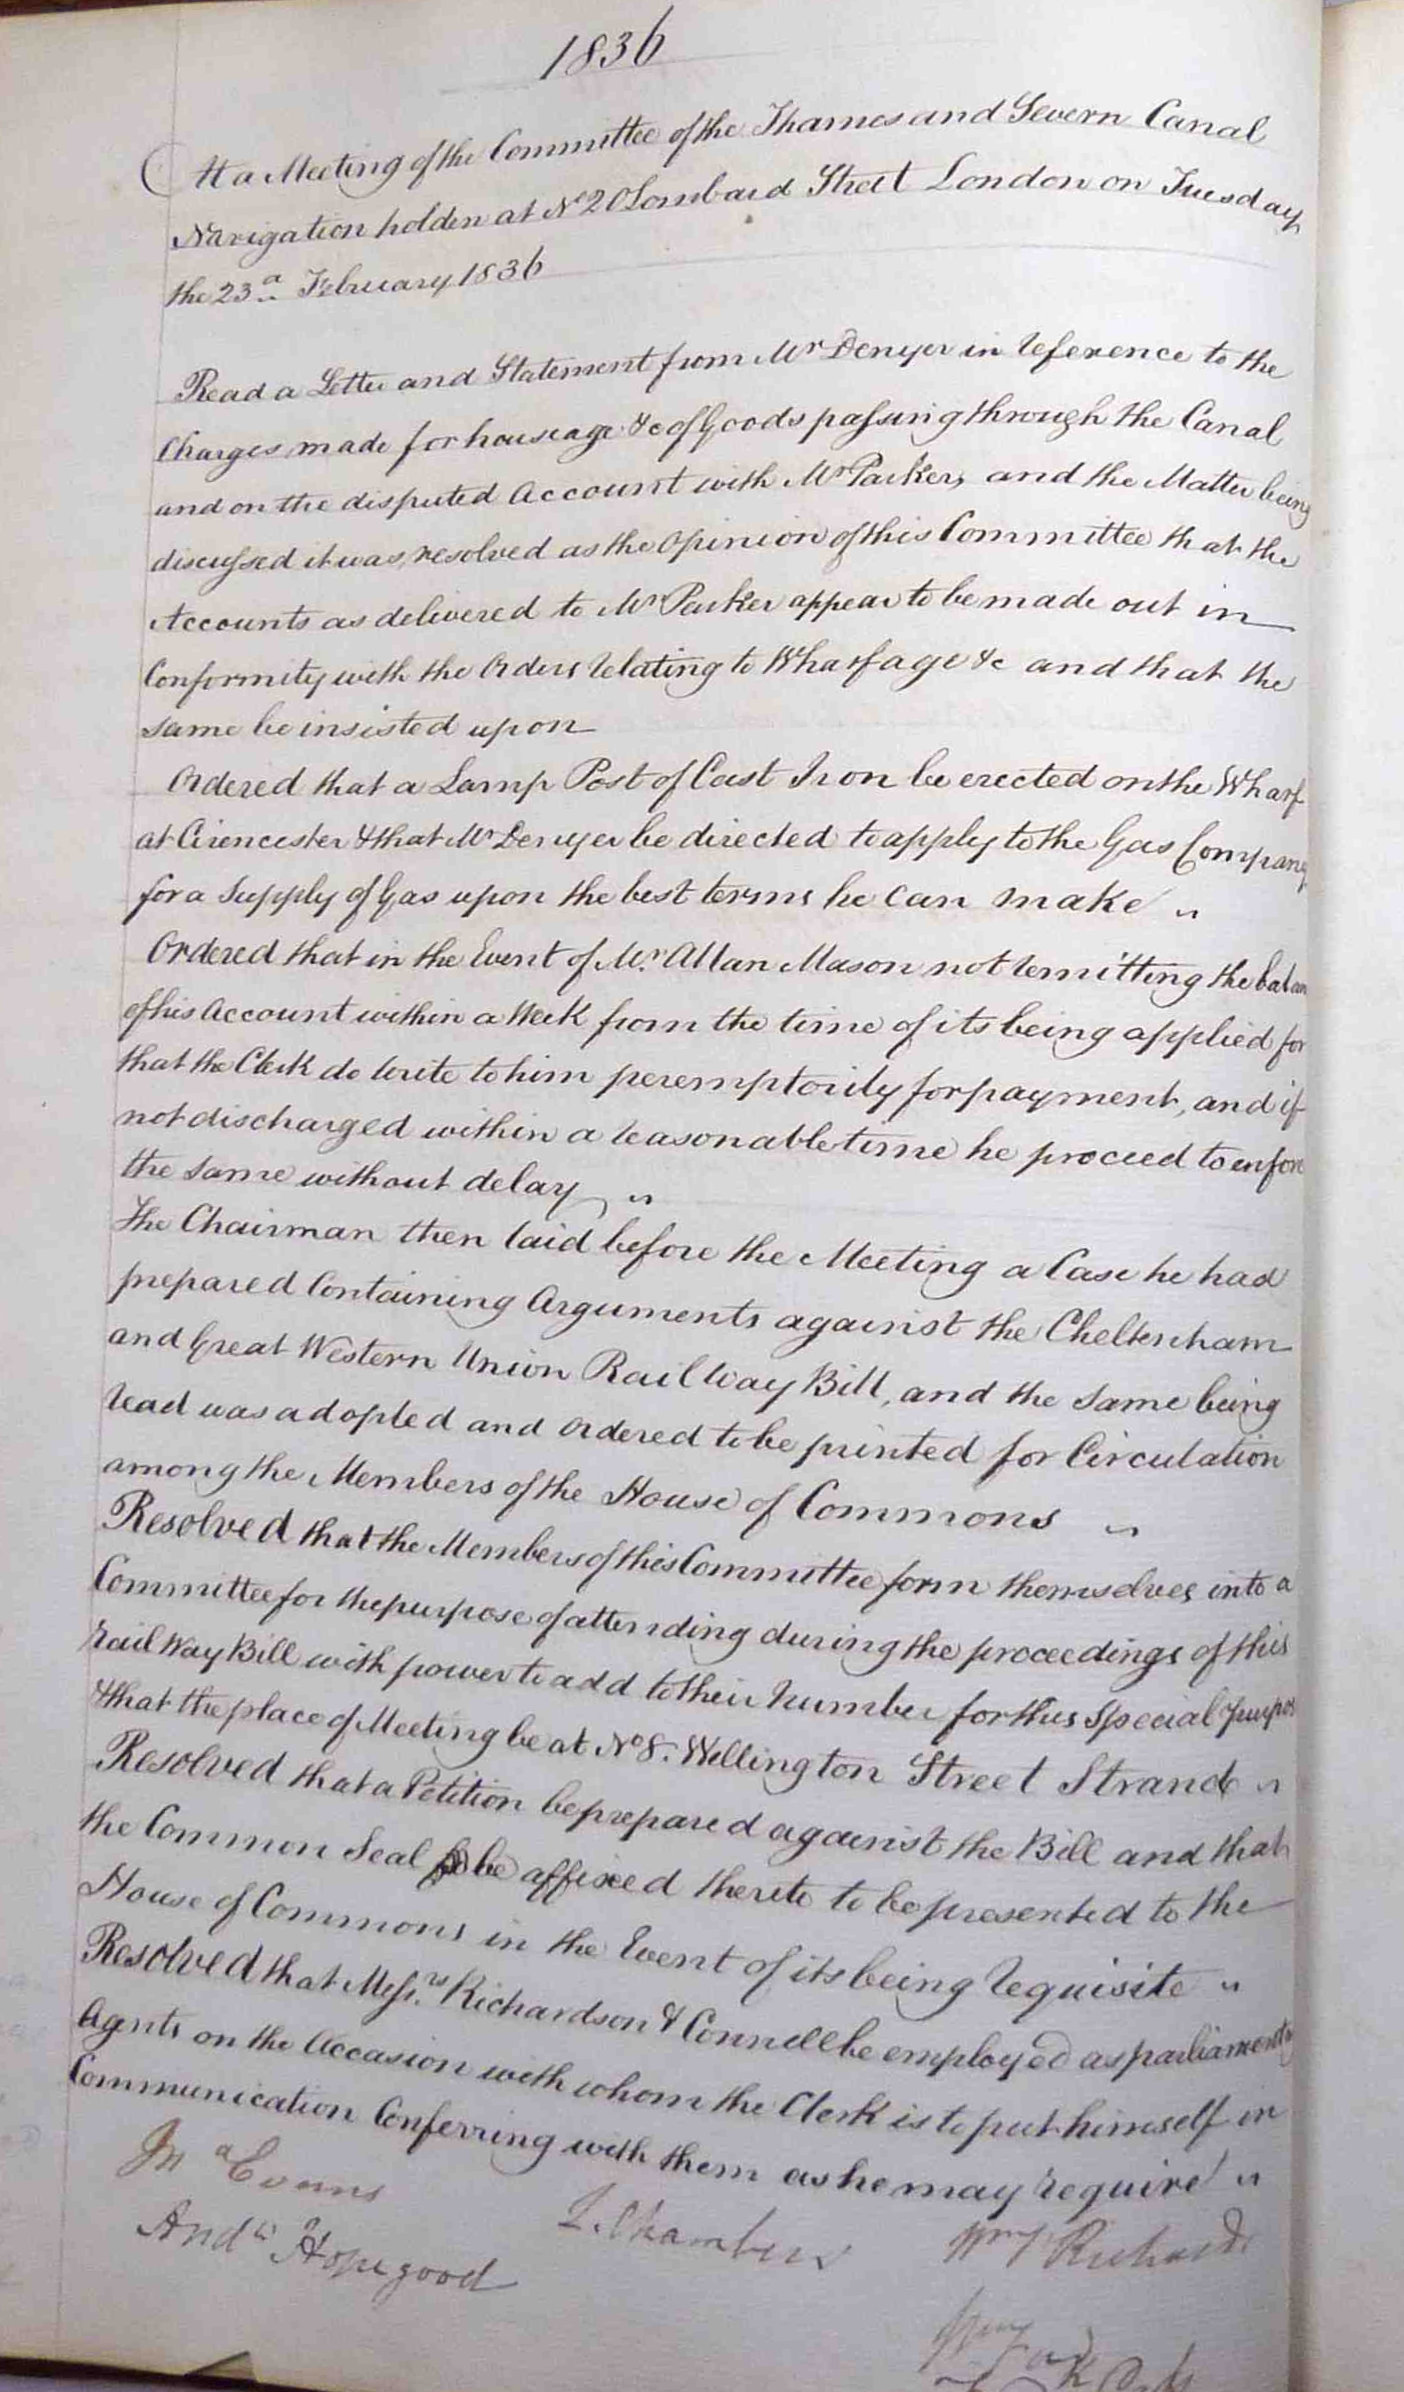 1836
At a Meeting of the Committee of the Thames and Severn Canal
Navigation holden at No 20 Lombard Street London on Tuesday
the 23d February 1836
Read a Letter and Statement from Mr Denyer in reference to the
Charges made for houseage &c of Goods passing through the Canal
and on the disputed Account with Mr Parker, and the Matter being
discussed it was, resolved as the Opinion of this Committee that the
Accounts as delivered to Mr Parker appear to be made out in
Conformity with the Orders relating to Wharfage &c and that the
same be insisted upon
Ordered that a Lamp Post of Cast Iron be erected on the Wharf
at Cirencester & that Mr Denyer be directed to apply to the Gas Company
for a Supply of Gas upon the best terms he can make "
Ordered that in the Event of Mr. Allan Mason not remitting the balan
of his Account within a Week from the time of its being applied for
that the Clerk do write to him peremptorily for payment, and if
not discharged within a reasonable time he proceed to enforc
the same without delay "
The Chairman then laid before the Meeting a Case he had
prepared Containing Arguments against the Cheltenham
and Great Western Union Rail Way Bill, and the same being
read was adopted and Ordered to be printed for Circulation
among the Members of the House of Commons "
Resolved that the Members of this Committee form themselves into a
Committee for the purpose of attending during the proceedings of this
Rail Way Bill with power to add to their Number for this Special purpos
& that the place of Meeting be at No 8. Wellington Street Strand "
Resolved that a Petition be prepared against the Bill and that
the Common Seal be affixed thereto to be presented to the
House of Commons in the Event of its being requisite "
Resolved that Messrs. Richardson & Connell be employed as parliamentry
Agents on the Occasion with whom the Clerk is to put himself in
Communication Conferring with them as he may require "
Evans
Andw Hopegood
Chambers
Richards